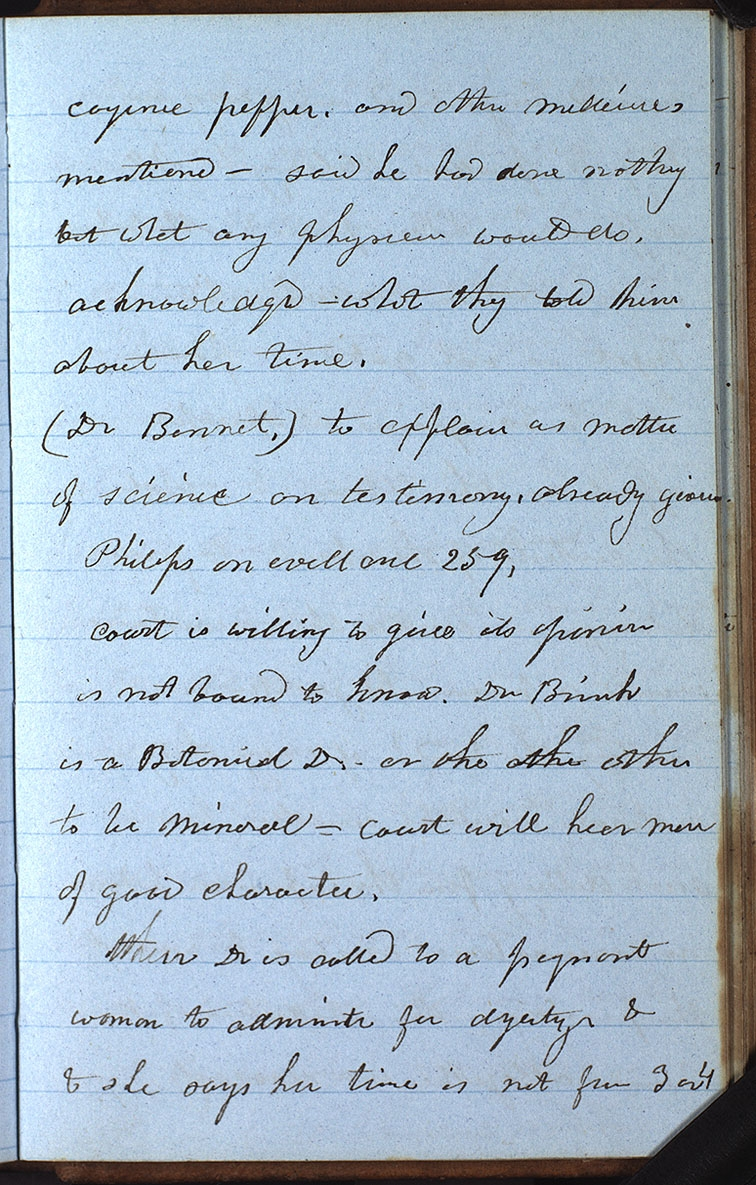 cayenne pepper. and other medicines
mentiond – said he had done nothing
but what any physician would do.
acknowledgd – what they told him
about her time.
(Dr Bennet.) to explain as matter
of science on testimony. already given.
Philips on evidence 259,
court is willing to give its opinion
is not bound to know. Dr
is a Botanical Dr. – or the other
to be mineral – court will hear men
of good character.
Dr is called to a pregnant
woman to administer for &
& she says her time is not for 3 or 4